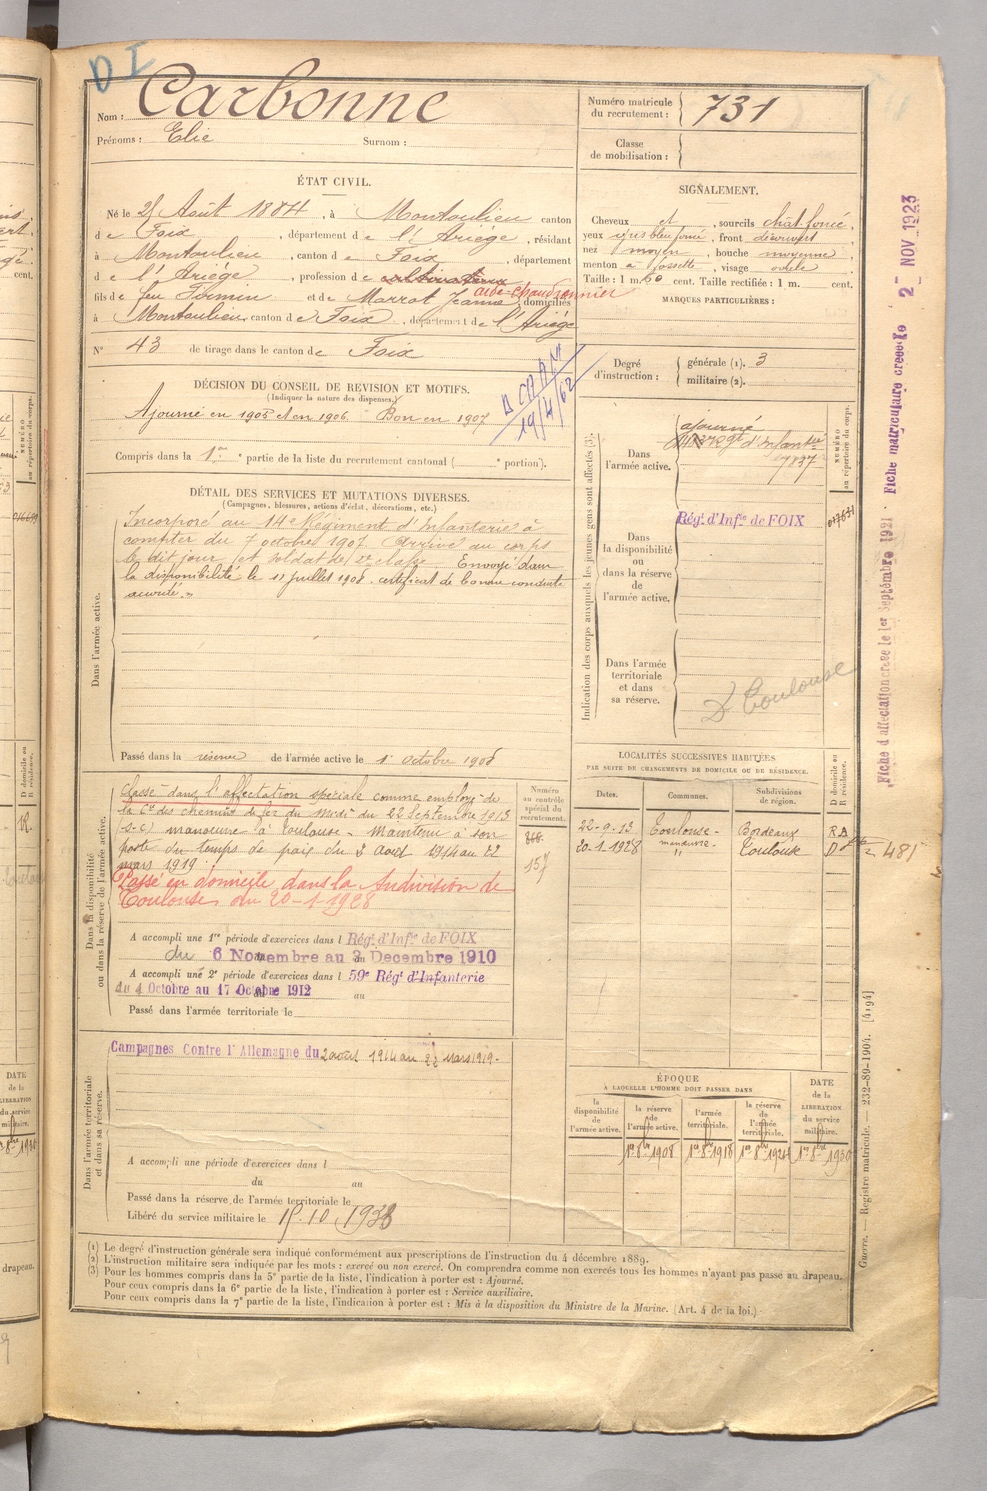 D I
Nom : Carbonne
Prénoms : Elie Surnom :
Numéro matricule du recrutement : 731
Classe de mobilisation :
ÉTAT CIVIL.
Né le 25 Août 1884, à Montoulieu canton
de Foix, département de l'Ariége, résidant
à Montoulieu, canton de Foix, département
de l'Ariége, profession de cultivateur aide-chaudronnier
fils de feu Firmin et de Marrot Jeanne, domiciliés
à Montoulieu, canton de Foix, département de l'Ariége
N° 43 de tirage dans le canton de Foix
SIGNALEMENT.
Cheveux et sourcils chât foncé,
yeux gris bleu foncé, front découvert,
nez moyen, bouche moyenne,
menton à fossette, visage ovale
Taille : 1 m. 60 cent. Taille rectifiée : 1 m. cent.
MARQUES PARTICULIÈRES :
Degré d'instruction : générale (1). 3
militaire (2).
DÉCISION DU CONSEIL DE REVISION ET MOTIFS.
(Indiquer la nature des dispenses.)
Ajourné en 1905 et en 1906. Bon en 1907
19/4/62
Compris dans la 1re partie de la liste du recrutement cantonal ( e portion).
DÉTAIL DES SERVICES ET MUTATIONS DIVERSES.
(Campagnes, blessures, actions d'éclat, décorations, etc.)
Dans l'armée active.
Incorporé au 14e Régiment d'Infanterie à
compter du 7 octobre 1907. Arrivé au corps
le dit jour et soldat de 2e classe. Envoyé dans
la disponibilité le 11 juillet 1908. certificat de bonne conduite
accordé."
Passé dans la réserve de l'armée active le 1r octobre 1908
Indication des corps auxquels les jeunes gens sont affectés (3).
NUMÉRO au répertoire du corps.
Dans l'armée active.
ajourné
Regt d'Infantie
7837
Dans la disponibilité ou dans la réserve de l'armée active.
Régt d'Infie de FOIX
Dans l'armée territoriale et dans sa réserve.
D Toulouse
Dans la disponibilité ou dans la réserve de l'armée active.
Classé dans l'affectation spéciale comme employé de
la Cie des chemins de fer du Midi du 22 Septembre 1913
(s-c) manœuvre à Toulouse - Maintenu à son
poste du temps de paix du 2 août 1914 au 22
mars 1919.
Passé en domicile dans la subdivision de
Toulouse du 20-1-1928
Numéro au contrôle spécial du recrutement.
A accompli une 1re période d'exercices dans l Régt d'Infie de FOIX
du 6 Novembre au 2 Decembre 1910
A accompli une 2e période d'exercices dans l 59e Régt d'Infanterie
du 1 Octobre au 17 Octobre 1912 au
Passé dans l'armée territoriale le
LOCALITÉS SUCCESSIVES HABITÉES
PAR SUITE DE CHANGEMENTS DE DOMICILE OU DE RÉSIDENCE.
Dates. Communes. Subdivisions de région. D domicile ou R résidence.
22-9-13 Toulouse - manœuvre - Bordeaux R
20-1-1928 " Toulouse D 481
Dans l'armée territoriale et dans sa réserve.
Campagnes Contre l'Allemagne du 2 août 1914 au 22 mars 1919.
A accompli une période d'exercices dans l
du au
Passé dans la réserve de l'armée territoriale le
Libéré du service militaire le 15.10.1933
ÉPOQUE
A LAQUELLE L'HOMME DOIT PASSER DANS
la disponibilité de l'armée active. la réserve de l'armée active. l'armée territoriale. la réserve de l'armée territoriale. DATE de la LIBÉRATION du service militaire.
1er 8bre 1908 1er 8bre 1918 1er 8bre 1924 1er 8bre 1930
(1) Le degré d'instruction générale sera indiqué conformément aux prescriptions de l'instruction du 4 décembre 1889.
(2) L'instruction militaire sera indiquée par les mots : exercé ou non exercé. On comprendra comme non exercés tous les hommes n'ayant pas passé au drapeau.
(3) Pour les hommes compris dans la 5e partie de la liste, l'indication à porter est : Ajourné.
Pour ceux compris dans la 6e partie de la liste, l'indication à porter est : Service auxiliaire.
Pour ceux compris dans la 7e partie de la liste, l'indication à porter est : Mis à la disposition du Ministre de la Marine. (Art. 4 de la loi.)
Guerre. — Registre matricule. — 232-89-1904. [4194]
Fiche d'affectation créée le 1er Septembre 1921 - Fiche matriculaire créée le 2 - NOV 1923